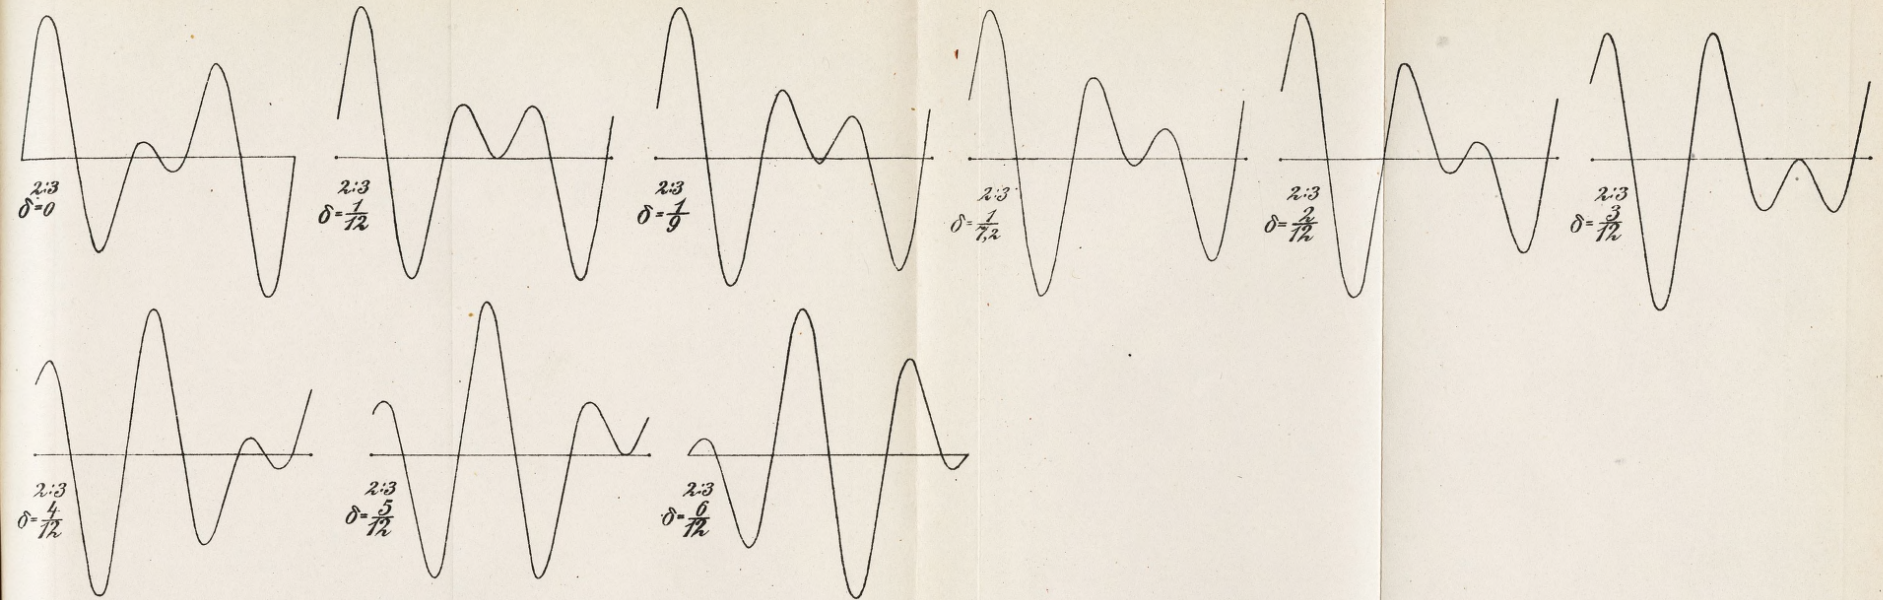 2:3
δ=0
2:3
δ=1/12
2:3
δ=1/9
2:3
δ=1/7,2
2:3
δ=2/12
2:3
δ=3/12
2:3
δ=4/12
2:3
δ=5/12
2:3
δ=6/12